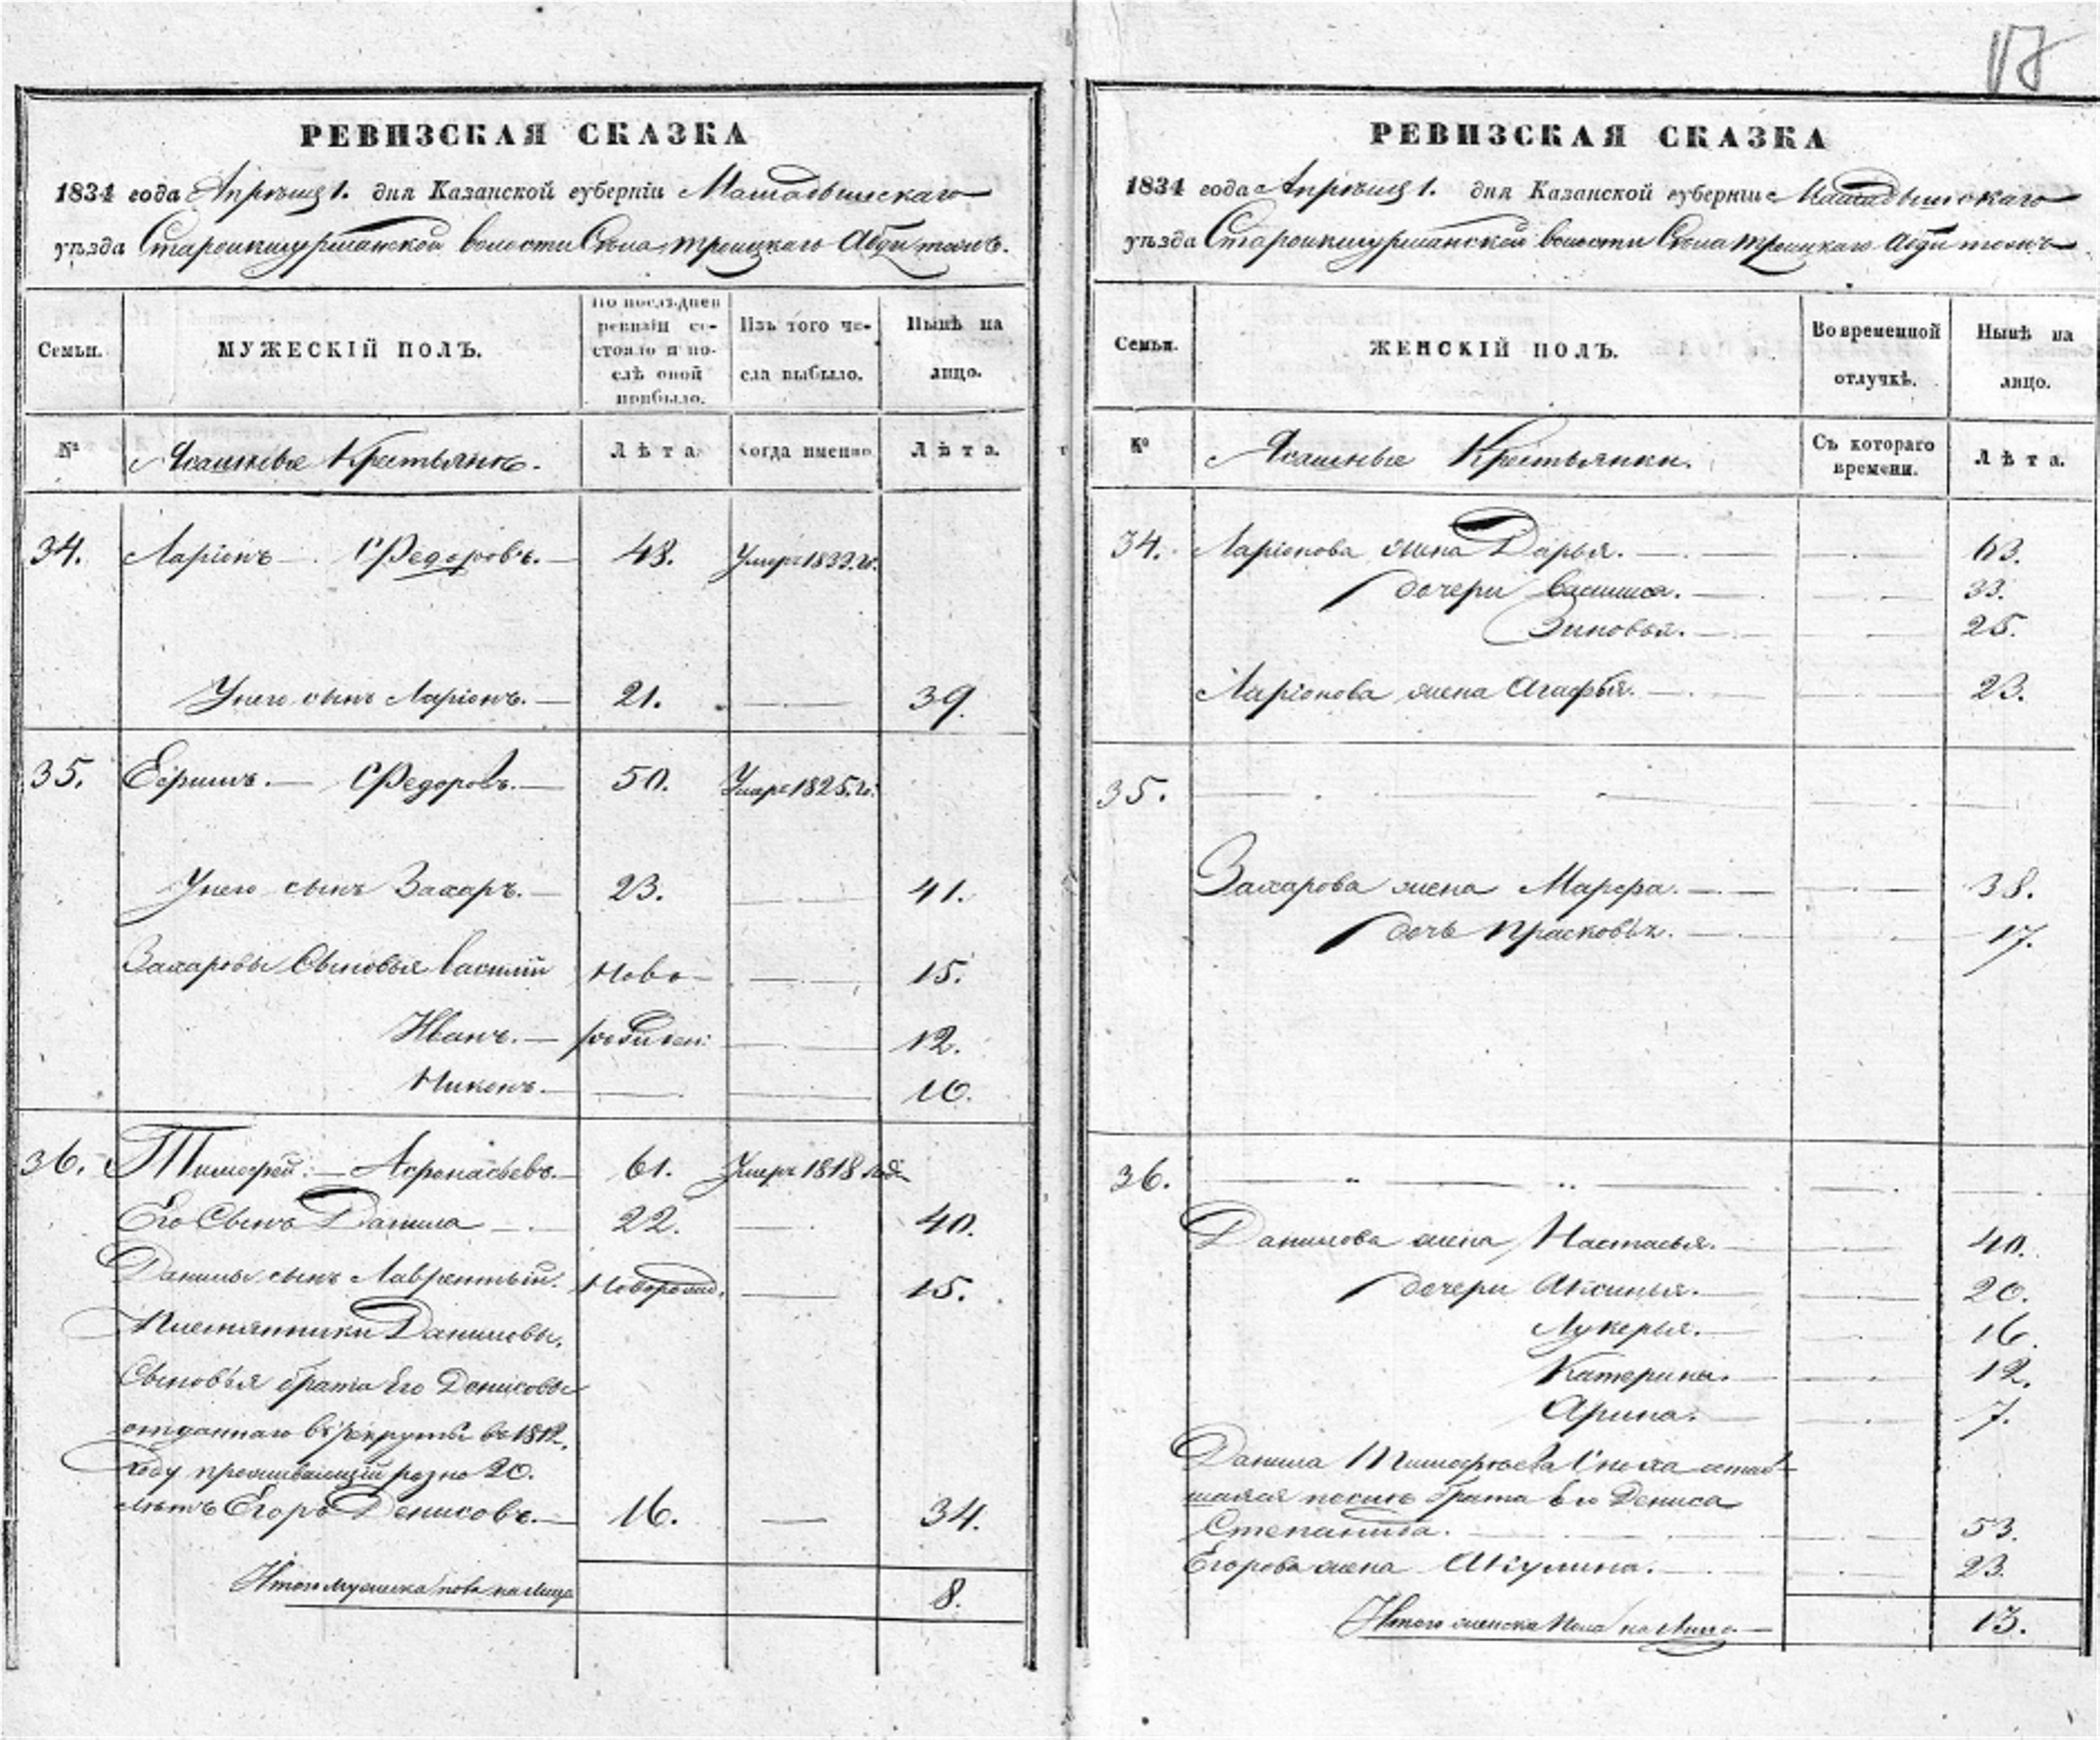 18
РЕВИЗСКАЯ СКАЗКА
1834 года Апреля 1. дня Казанской губерніи Мамадышскаго
уѣзда волости Села Троицкаго тожъ.
Семьи.
МУЖЕСКІЙ ПОЛЪ.
По послѣдней ревизіи со-
стояло и по-
слѣ оной
прибыло.
Изъ того чи-
сла выбыло.
Нынѣ на
лицо.
№ Ясашные Крестьяне. Лѣта. Когда именно Лѣта.
34. Ларіонъ Федоровъ. 48. Умре 1833. го.
Унего сынъ Ларіонъ. 21. 39.
35. Ефимъ. Федоровъ. 50. Умре 1825. го.
Унего сынъ Захаръ. 23. 41.
Захаровы Сыновья Василій Ново 15.
Иванъ. рожден: 12.
Никонъ. 10.
36. Тимофей. Афонасьевъ. 61. Умре 1818 год
Его Сынъ Данила 22. 40.
Данилы сынъ Лаврентьий. Новорожд. 15.
Племянники Даниловы,
Сыновья брата Его Денисовы
отданнаго въ рекруты въ 1812.
году проживающій розно 20.
летъ Егоръ Денисовъ. 16. 34.
Итого мужеска пола на лицо 8.
РЕВИЗСКАЯ СКАЗКА
1834 года Апреля 1. дня Казанской губерніи Мамадышскаго
уѣзда волости Села Троицкаго тожъ
Семьи.
ЖЕНСКІЙ ПОЛЪ.
Во временной
отлучкѣ.
Нынѣ на
лицо.
№ Ясашные Крестьянки. Съ котораго
времени. Лѣта.
34. Ларіонова жена Дарья. 63.
дочери Василиса. 33.
Зиновья. 25.
Ларіонова жена Агафья. 23.
35.
Захарова жена Марфа. 38.
дочь Прасковья. 17.
36.
Данилова жена Настасья. 40.
дочери Аксинья. 20.
Лукерья. 16.
Катерина. 12.
Арина. 7.
Данила Тимофеева Сноха остав
шаяся после брата Его Дениса
Степанида. 53.
Егорова жена Акулина. 23.
Итого женска Пола на Лицо 13.